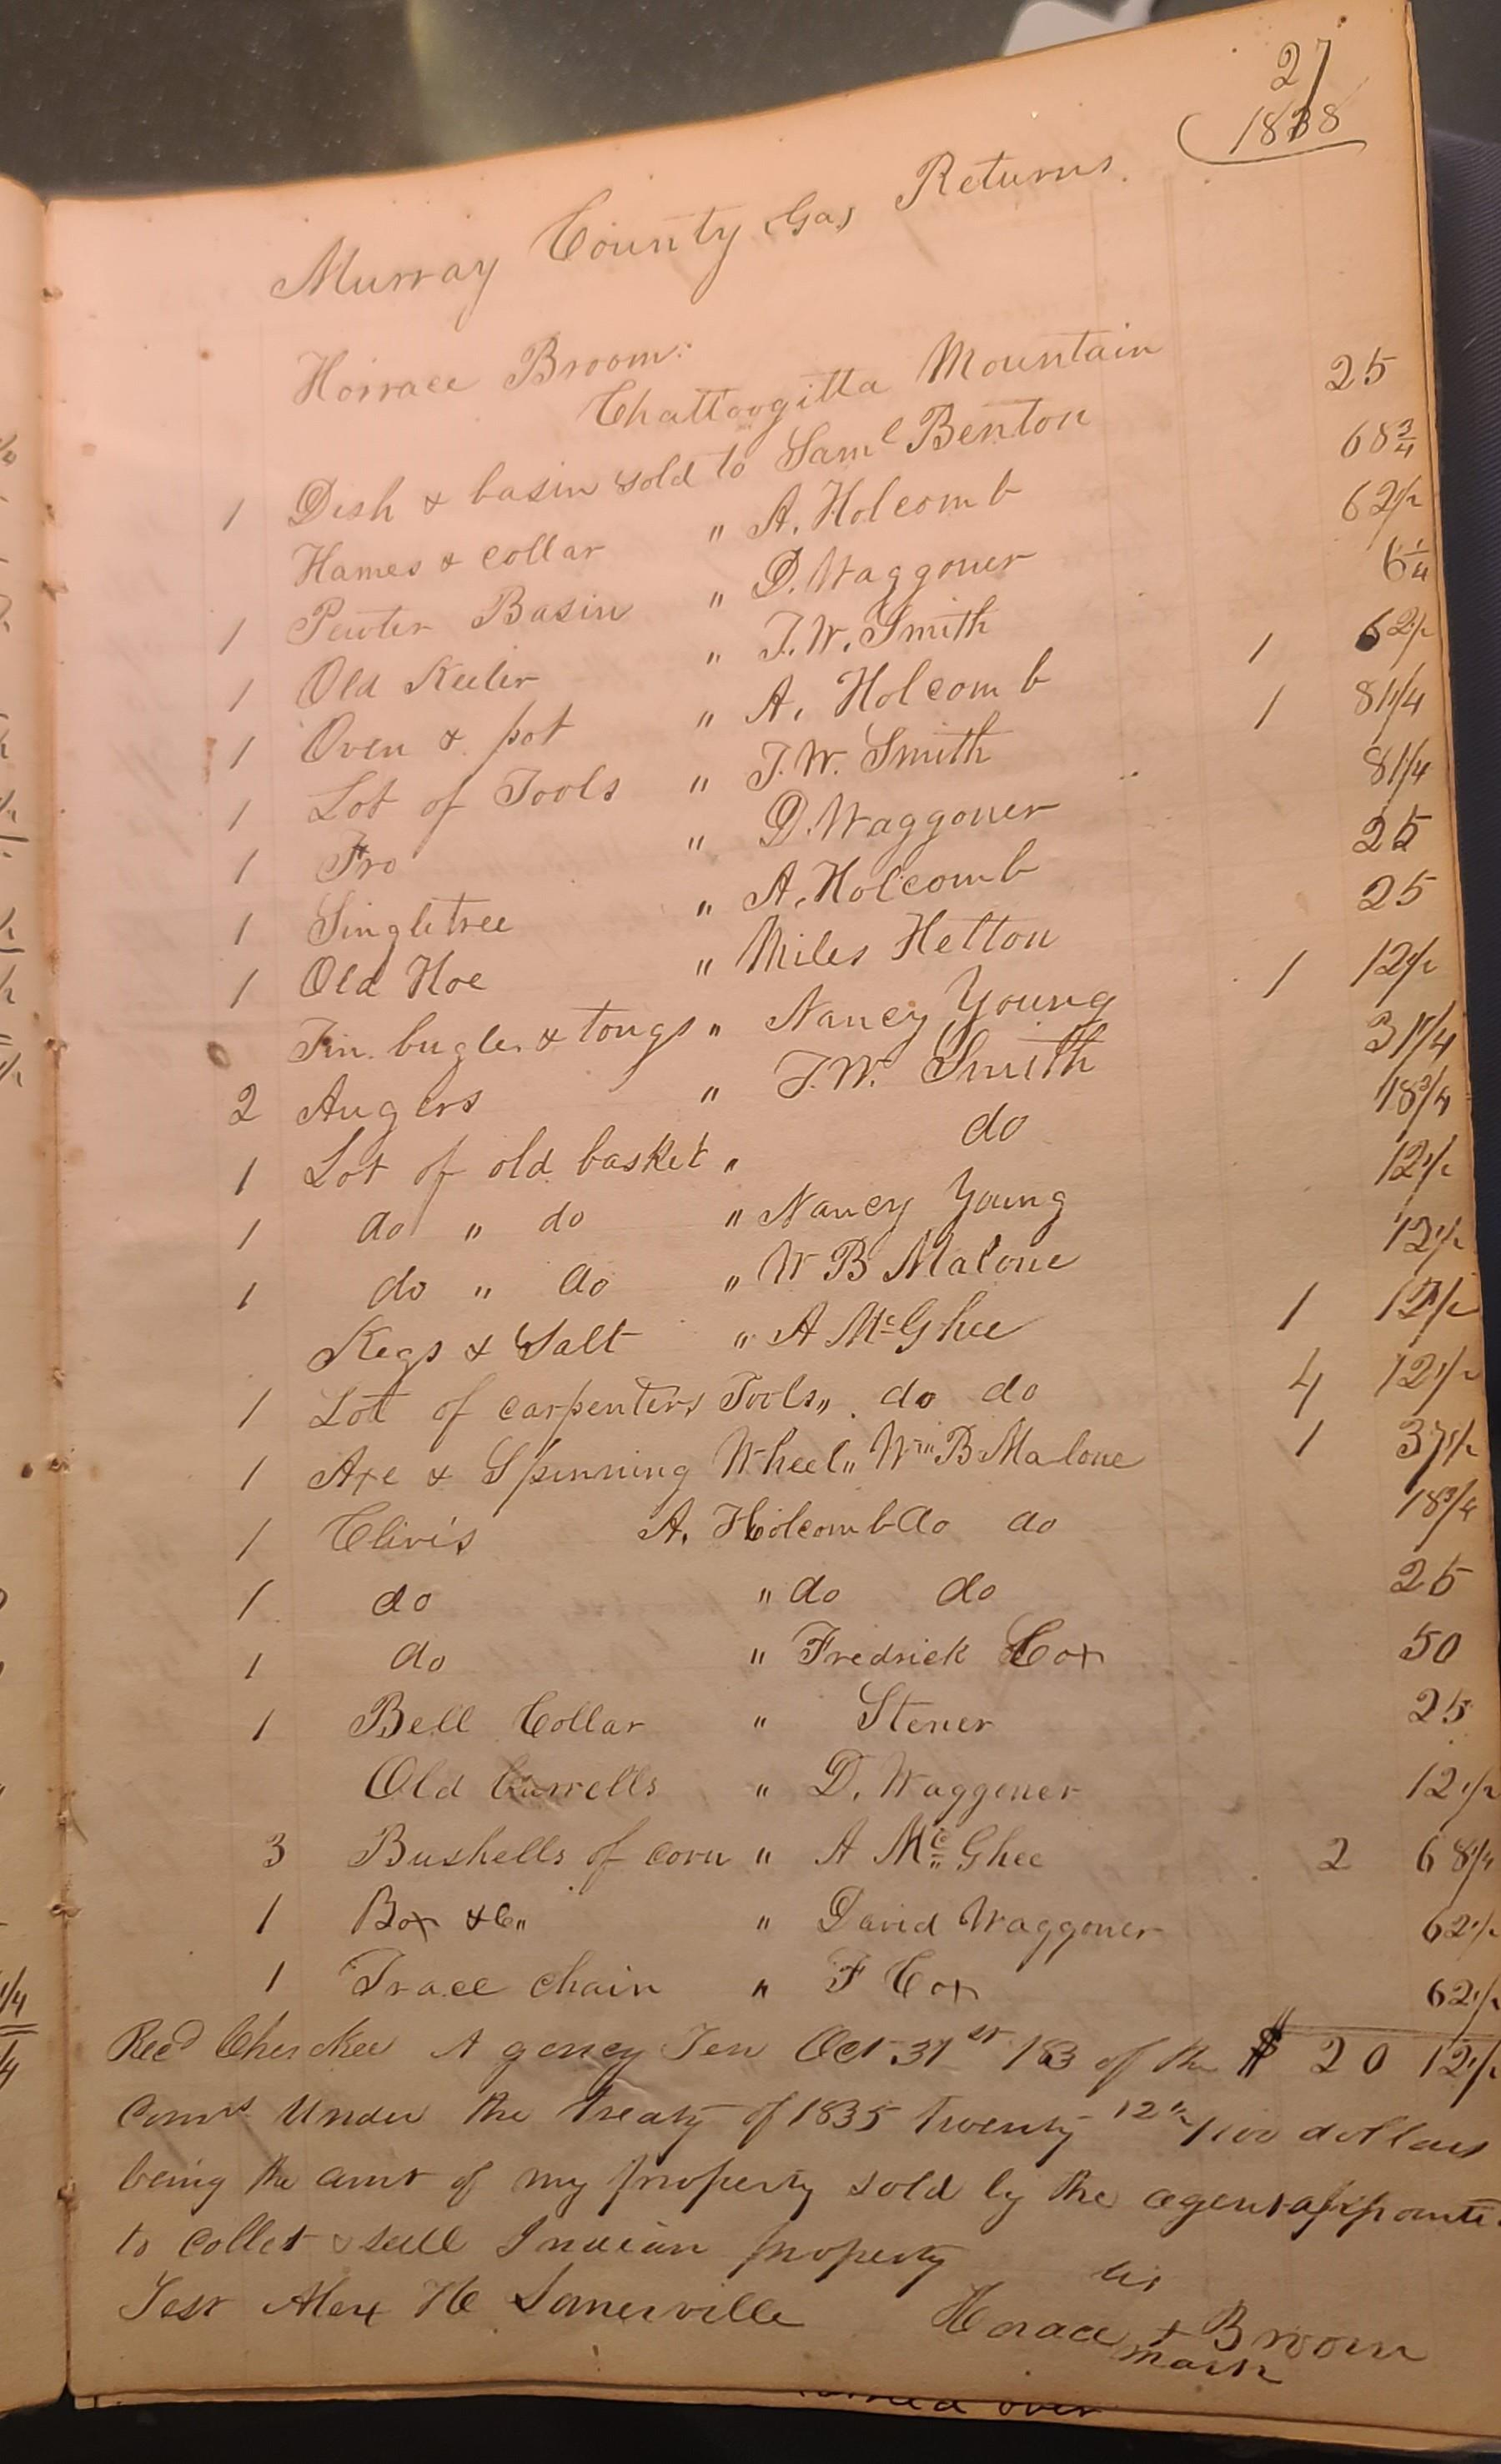 27
1838
Murray County Gas Returns.
Horrace Broom:
Chattoogitta Mountain
1 Dish & basin sold to Saml Benton 25
Hames & collar " A. Holcomb 68 3/4
1 Pewter Basin " D. Waggoner 62 1/2
1 Old Keeler " T. W. Smith 6 1/4
1 Oven & pot " A. Holcomb 1 62 1/2
1 Lot of Tools " T. W. Smith 1 81 1/4
1 Fro " D. Waggoner 81 1/4
1 Singletree " A. Holcomb 25
1 Old Hoe " Miles Hetton 25
Tin bugler & tongs " Nancy Young 1 12 1/2
2 Augers " T. W. Smith 31 1/4
1 Lot of old basket " do 18 3/4
1 do " do " Nancy Young 12 1/2
1 do " do " W B Malone 12 1/2
Kegs & Salt " A McGhee 1 12 1/2
1 Lot of carpenters Tools " do do 4 12 1/2
1 Axe & Spinning Wheel " Wm B Malone 1 37 1/2
1 Clivis A. Holcomb do do 18 3/4
1 do " do do 25
1 do " Fredrick Cox 50
1 Bell Collar " Stener 25
Old barrells " D. Waggoner 12 1/2
3 Bushells of corn " A McGhee 2 68 1/4
1 Box &C " David Waggoner 62 1/2
1 Trace chain " F Cox 62 1/2
$ 20 12 1/2
Recd Cherokee Agency Ten Oct 31st 183 of the
Comrs Under the treaty of 1835 twenty 12 1/2/100 dollars
being the amt of my property sold by the agent appointe
to collet & sell Indian property
his
Test Alex H Somerville Horace + Broom
mark
over